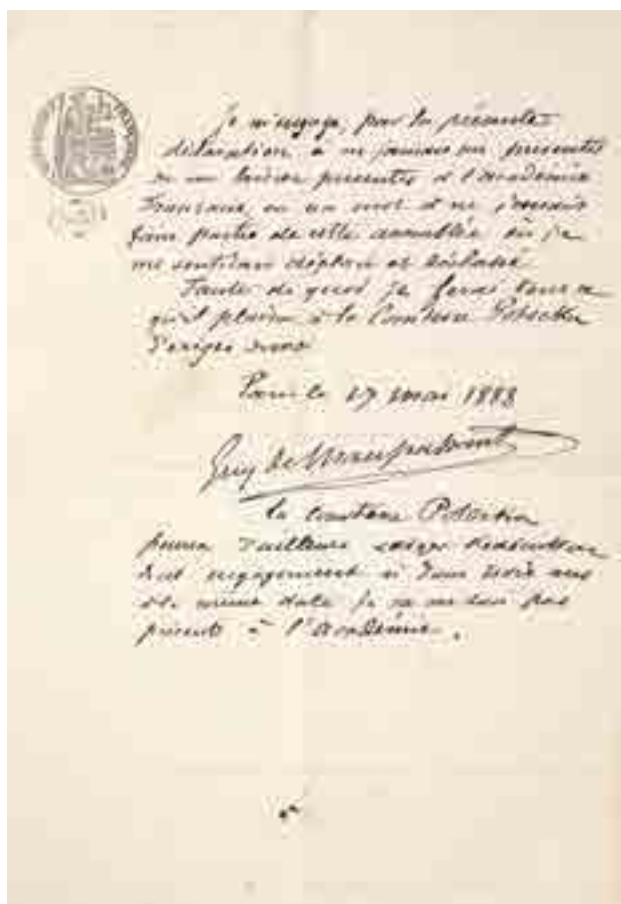 Je m'engage, par la présente
déclaration à ne jamais me présenter
ou me laisser présenter à l'académie
Française, en un mot à ne jamais
faire partie de cette assemblée où je
me sentirais déplacé et
Faute de quoi je ferai tout ce
qu'il plaira à la Comtesse Potocka
d'exiger
Paris le 17 mai 1888
Guy de Maupassant
La Comtesse Potocka
pourra d'ailleurs exiger
de cet engagement si dans trois ans
à la même date je ne me suis pas
présenté à l'Académie.